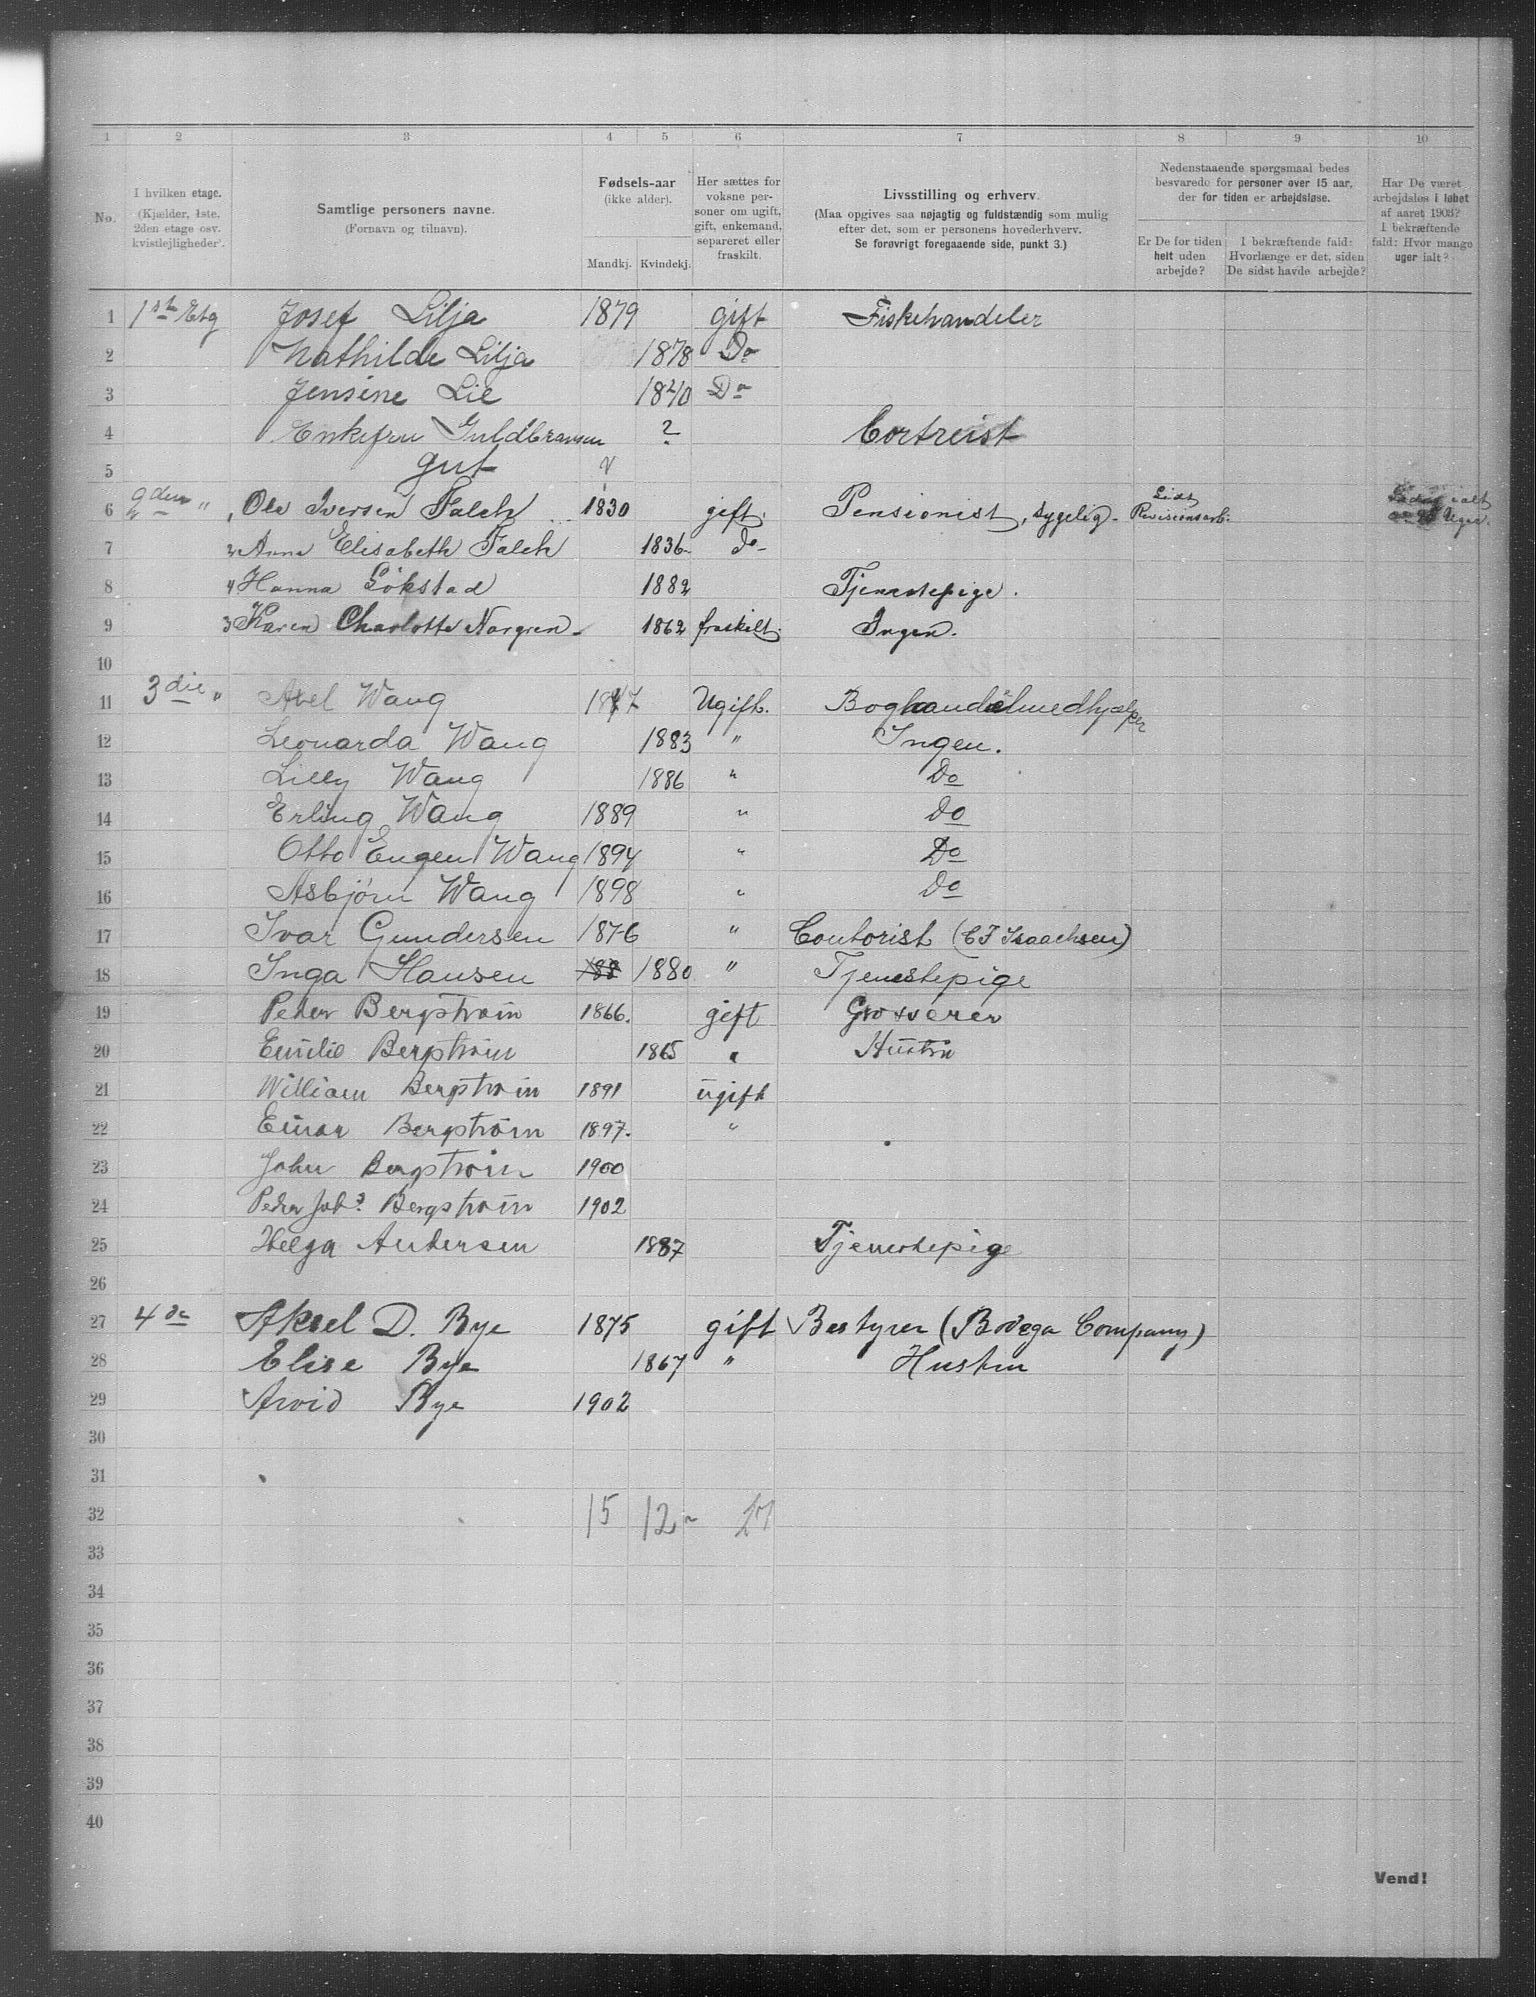 1 2 3 4 5 6 7 8 9 10
No.
I hvilken etage.
(Kjælder, 1ste, 2den etage osv. kvistlejligheder).
Samtlige personers navne.
(Fornavn og tilnavn).
Fødsels-aar
(ikke alder).
Mandkj. Kvindekj.
Her sættes for voksne personer om ugift, gift, enkemand, separeret eller fraskilt.
Livsstilling og erhverv.
(Maa opgives saa nøjagtig og fuldstændig som mulig efter det, som er personens hovederhverv.
Se forøvrigt foregaaende side, punkt 3.)
Nedenstaaende spørgsmaal bedes besvarede for personer over 15 aar, der for tiden er arbejdsløse.
Er De for tiden helt uden arbejde?
I bekræftende fald: Hvorlænge er det, siden De sidst havde arbejde?
Har De været arbejdsløs i løbet af aaret 1903? I bekræftende fald: Hvor mange uger ialt?
1 1ste Etg Josef Lilja 1879 gift Fiskehandeler
2 Mathilde Lilja 1878 Do
3 Jensine Lie 1840 Do
4 Enkefru Guldbransen ? Bortreist
5 gut v
6 2den " 1 Ole Iversen Falch 1830 gift. Pensionist, sygelig. Lidt Revisionsarb. ialt Uger.
7 2 Anna Elisabeth Falch 1836 do
8 4 Hanna Gökstad 1882 Tjenestepige.
9 3 Karen Charlotte Norgren 1862 fraskilt. Ingen.
10
11 3die " Axel Wang 1877 Ugift. Boghandelmedhjælper
12 Leonarda Wang 1883 " Ingen.
13 Lilly Wang 1886 " Do
14 Erling Wang 1889 " Do
15 Otto Eugen Wang 1894 " Do
16 Asbjørn Wang 1898 " Do
17 Ivar Gundersen 1876 " Contorist (C F Isaachsen)
18 Inga Hansen 188 1880 " Tjenestepige
19 Peder Bergström 1866. gift Grosserer
20 Emilie Bergström 1865 " Hustru
21 William Bergström 1891 ugift
22 Einar Bergström 1897. "
23 John Bergström 1900
24 Peder Joh. Bergström 1902
25 Helga Andersen 1887 Tjenestepige
26
27 4de Aksel D. Bye 1875 gift Bestyrer (Bodega Company)
28 Elise Bye 1867 " Hustru
29 Arvid Bye 1902
30
31
32 15 12 27
33
34
35
36
37
38
39
40
Vend!